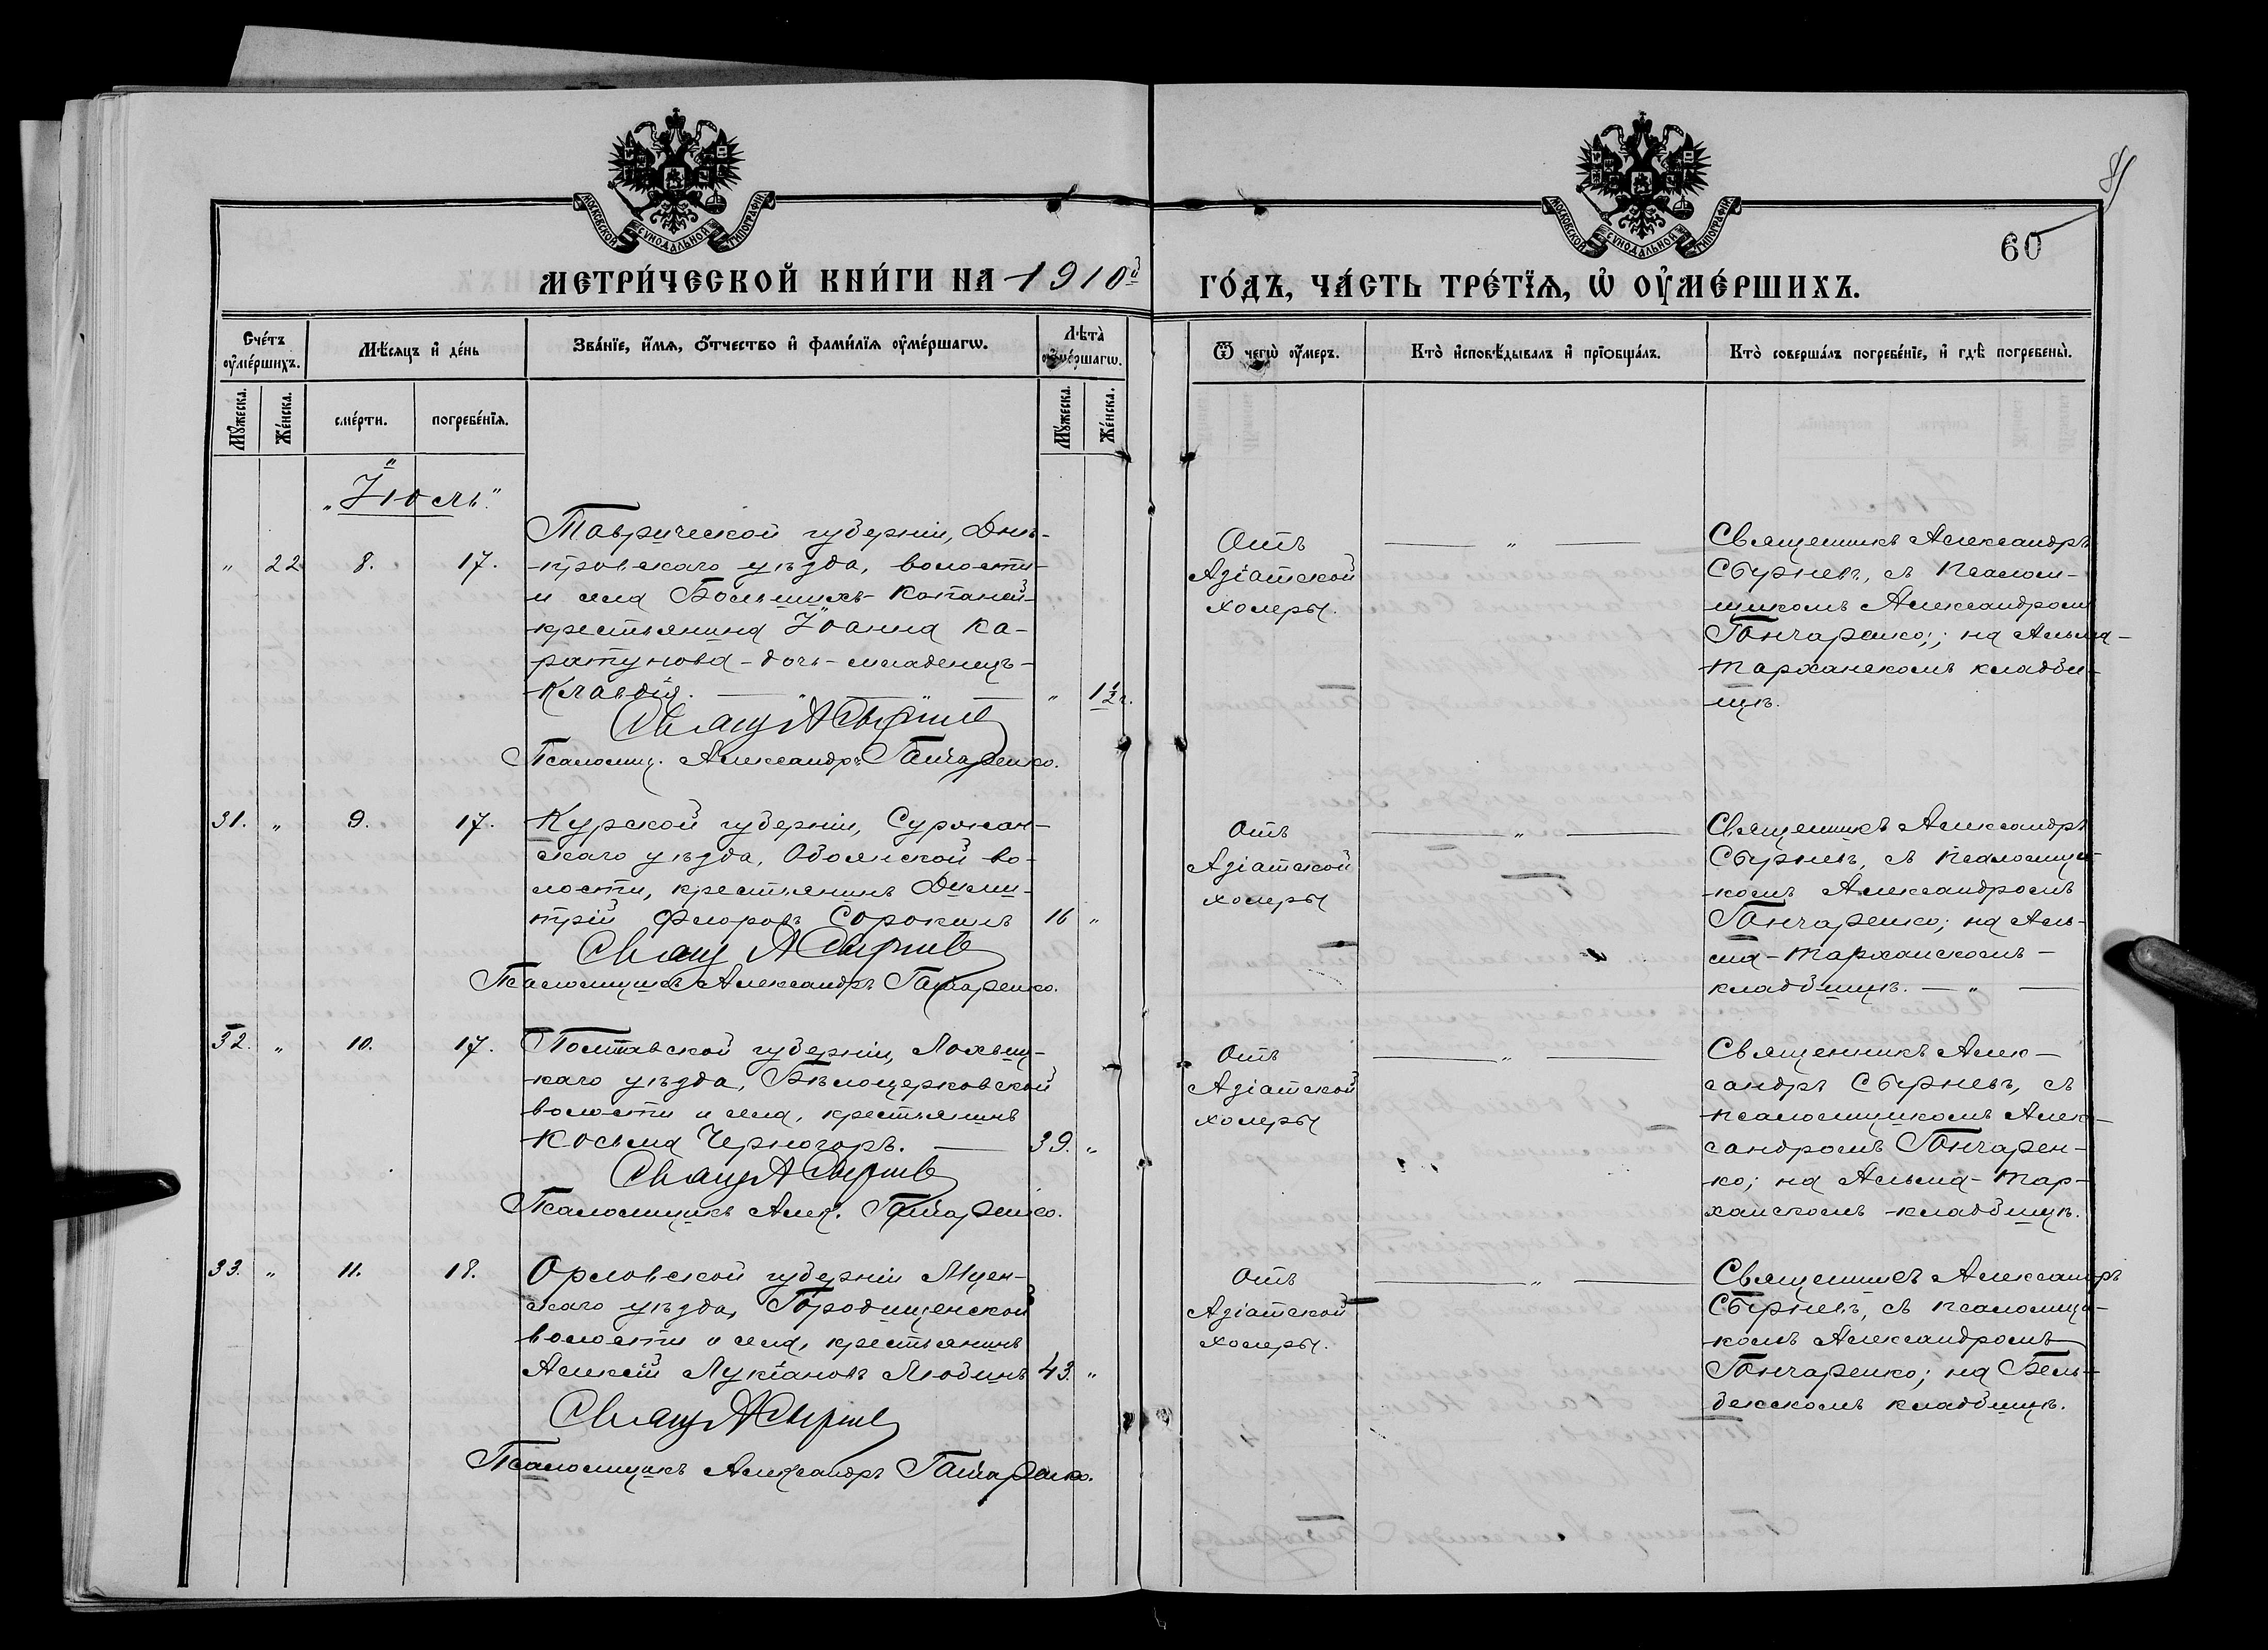 МОСКОВСКОЙ СУНОДАЛЬНОЙ ТИПОГРАФІИ.
МОСКОВСКОЙ СУНОДАЛЬНОЙ ТИПОГРАФІИ.
60
МЕТРИ́ЧЕСКОЙ КНИ́ГИ НА 1910й
ГО́ДЪ, ЧА́СТЬ ТРЕ́ТЇѦ, Ѡ҆ ОУ҆МЕ́РШИХЪ.
Сче́тъ оу҆ме́ршихъ.
Мѣ́сѧцъ и҆ де́нь
Зва́нїе, и҆́мѧ, ѻ҆́тчество и҆ фами́лїѧ оу҆ме́ршагѡ.
Лѣ́та оу҆ме́ршагѡ.
Ѿ чегѡ̀ оу҆́меръ.
Кто̀ и҆сповѣ́дывалъ и҆ прїѡбща́лъ.
Кто̀ соверша́лъ погребе́нїе, и҆ гдѣ̀ погребены̀.
Мꙋ́жеска.
Же́нска.
сме́рти.
погребе́нїѧ.
Мꙋ́жеска.
Же́нска.
„Іюль."
„ 22 8. 17.
Таврической губерніи, Днѣ-
провскаго уѣзда, волости
и села Большихъ Копаней
крестьянина Іоанна Ка-
ратунова - дочь - младенецъ -
Клавдія. — „ — „ 1½ г.
Свящ А Сырнев
Псаломщ. Александръ Гончаренко.
Отъ
Азіатской
холеры.
— „ —
Священникъ Александръ
Сбурневъ, съ псалом-
щикомъ Александромъ
Гончаренко; на Альма-
Тарханскомъ кладби-
щѣ.
31. „ 9. 17.
Курской губерніи, Суржан-
скаго уѣзда, Обоянской во-
лости, крестьянинъ Дими-
трій Флоровъ Сорокинъ 16 „
Свящ А Сырнев
Псаломщикъ Александръ Гончаренко.
Отъ
Азіатской
холеры
— „ —
Священникъ Александръ
Сбурневъ, съ псаломщи-
комъ Александромъ
Гончаренко; на Аль-
ма-Тарханскомъ -
кладбищѣ. — „ —
32. „ 10. 17.
Полтавской губерніи, Лохвиц-
каго уѣзда, Бѣлоцерковской
волости и села, крестьянинъ
Косьма Черногоръ. — 39. „
Свящ А Сырнев
Псаломщикъ Алек. Гончаренко.
Отъ
Азіатской
холеры
— „ —
Священникъ Алек-
сандръ Сбурневъ, съ
псаломщикомъ Алек-
сандромъ Гончарен-
ко; на Альма-Тар-
ханскомъ кладбищѣ.
33. „ 11. 18.
Орловской губерніи Мцен-
скаго уѣзда, Городищенской
волости и села, крестьянинъ
Алексій Лукіановъ Любинъ 43. „
Свящ А Сырнев
Псаломщикъ Александръ Гончаренко.
Отъ
Азіатской
холеры.
— „ —
Священникъ Александръ
Сбурневъ, съ псаломщи-
комъ Александромъ
Гончаренко; на Бель-
бекскомъ кладбищѣ.